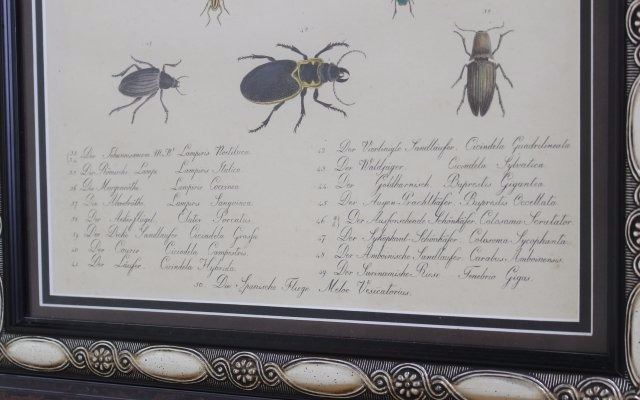 Der Johanniswurm M. W. Lampiris Noctiluca
35 Der Römische Lampe Lampiris Italica
36 Die Morgenröthe Lampiris Coccinea
37 Die Abendröthe Lampiris Sanguinea
38 Der Elater Porcatus
39 Der Dicke Sandlaufer Cicindela Grossa
40 Der Cicindela Campestris
41 Der Läufer Cicindela Hybrida
42 Der Sandlaufer Cicindela Quadrolineata
43 Der Waldjäger Cicindela Sylvatica
44 Der Goldharnisch Buprestis Gigantea
45 Der Augen Prachtkäfer Buprestis Occellata
46 Der Ausforschende Schönkäfer Calosoma Scrutator
47 Der Sykophant Schönkäfer Calosoma Sycophanta
48 Der Amboinische Sandlaufer Carabus Amboinensis
49 Der Surinamische Riese Tenebrio Gigas
50 Die Spanische Fliege Meloe Vesicatorius.